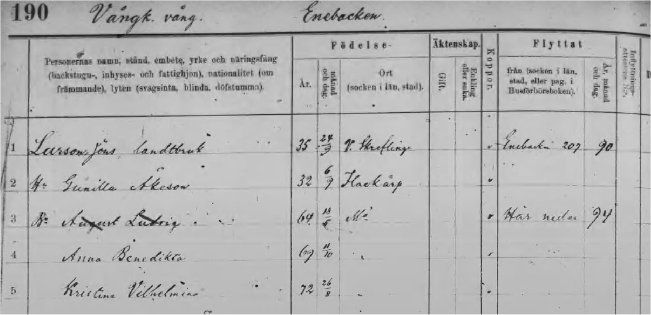 190 Vångk. vång. Enebacken.
Personernas namn, stånd, embete, yrke och näringsfång (backstugu-, inhyses- och fattighjon), nationalitet (om främmande), lyten (svagsinta, blinda, döfstumma).
Födelse-
År. månad och dag. Ort (socken i län, stad).
Äktenskap.
Gift. Enkling eller enka.
Koppor.
Flyttat
från (socken i län, stad, eller pag. i Husförhörsboken). År, månad och dag.
1 Larsson Jöns, landtbruk 35 24/9 V. Skrefling " Enebacken 207 90
2 H. Gunilla Åkeson 32 6/9 Flackarp "
3 Bn August Ludvig 64 " Här nedan 94
4 Anna Benedikta 69 11/10 "
5 Kristina Vilhelmina 72 26/8 "